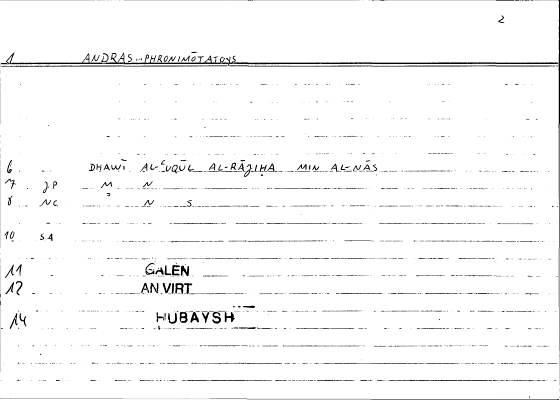 2
1 ANDRAS...PHRONIMŌTATOYS
6 DHAWĪ AL-ʿUQŪL AL-RĀJIḤA MIN AL-NĀS
7 JP M N
8 NC N S
10 S4
11 GALEN
12 AN VIRT
14 HUBAYSH